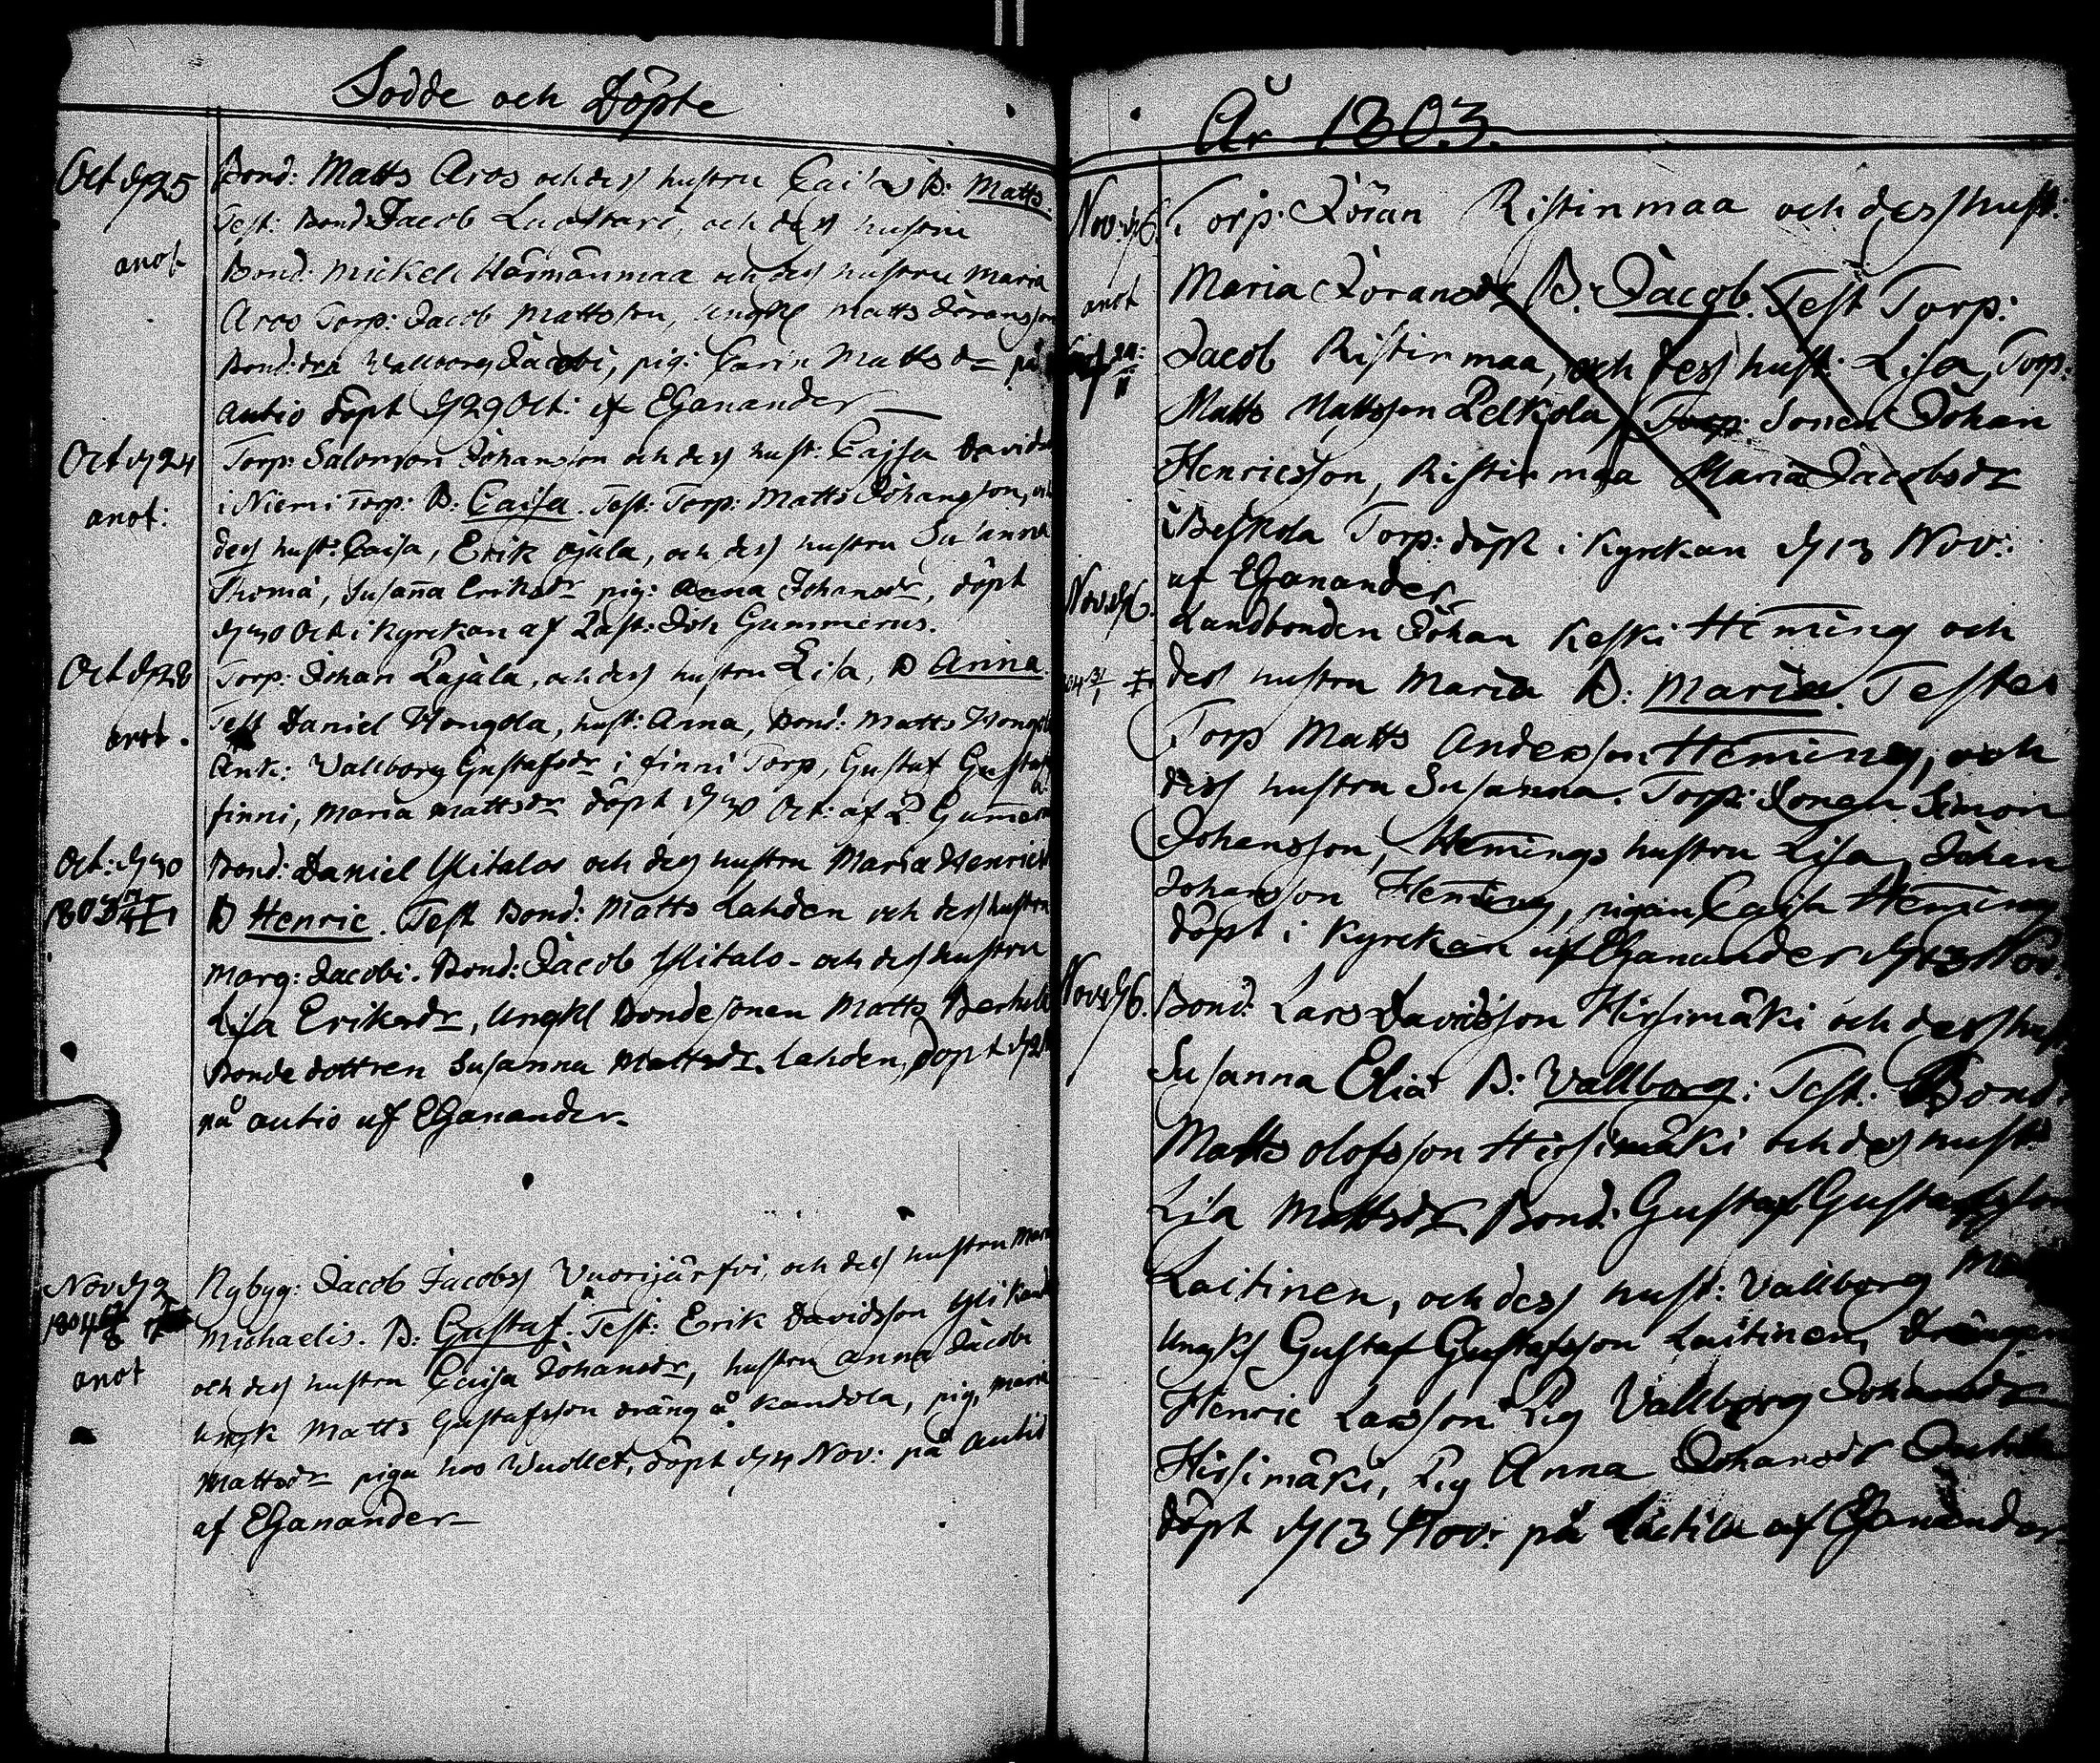 Födde och Döpte
Oct d 25
anot
Bond: Matts Aros och dess hustru Caisa B: Matts.
Test: Bond: Jacob Luostari, och dess hustru
Bond: Mickel Härmänmaa och dess hustru Maria
Aros Torp: Jacob Mattsson, ungkl Matts Göransson
Bond: dr Wallborg Jacobi, pig: Carin Mattsdr på
autio döpt d 29 Oct: af EGanander
Oct d 24
anot:
Torp: Salomon Johansson och dess hust: Cajsa Davids
i Niemi Torp: B: Caisa. Test: Torp: Matts Johansson, och
dess hust: Caisa, Erik Ojala, och dess hustru Susanna
Thomæ, Susanna Eriksdr pig: Anna Johansdr, döpt
d 30 Oct: i Kyrckan af Past: Joh Gummerus.
Oct d 28
anot.
Torp: Johan Pajala, och dess hustru Lisa, B Anna.
Test Daniel Hongola, hust: Anna, Bond: Matts Hongola
Änk: Vallborg Gustafsdr i finni Torp, Gustaf Gustafs
finni, Maria Mattsdr döpt d 30 Oct: af P. Gummerus
Oct: d 30
1803
Bond: Daniel Ylitalos och dess hustru Maria Henrics
B Henric. Test Bond: Matts Lahden och dess hustru
Marg: Jacobi. Bond: Jacob Ylitalo- och dess hustru
Lisa Eriksdr, Ungkl Bondesonen Matts
Bondedottren Susanna Mattsdr. Lahden, döpt d
på autio af EGanander-
Nov d 2
1804
anot
Nybyg: Jacob Jacobss Vuorijärfvi, och dess hustru Maria
Michaelis. B: Gustaf. Test: Erik Davidsson Yli Kand
och dess hustru Caisa Johansdr, hustru Anna Jacobi
ungk Matts Gustafsson dräng å Kandola, pig, Maria
Mattsdr piga hos Wuollet, döpt d 4 Nov: på autio
af EGanander-
År 1803.
Nov: d 6.
anot
Torp: Göran Ristinmaa och dess hust:
Maria Göransdr B: Jacob. Test Torp:
Jacob Ristinmaa, och dess hust: Lisa, Torp:
Matts Mattsson Pelkola, Torp: Sonen Johan
Henricsson, Ristinmaa Maria Jacobsdr
i Torp: döpt i Kyrckan d 13 Nov:
af EGanander
Nov: d 6.
Landbonden Johan Keski Heming och
dess hustru Maria B: Maria. Testes
Torp Matts Andersson Heming, och
dess hustru Susanna. Torp: Sonen Simon
Johansson, Hemings hustru Lisa, Johan
Johansson Heming, pigan Caisa Heming
döpt i Kyrckan af EGanander d 13 Nov:
Nov: d 6.
Bond: Lars Davidsson Hirsimäki och dess hust
Susanna Eliæ B: Vallborg: Test: Bond:
Matts Olofsson Hirsimäki och dess hust:
Lisa Mattsdr. Bond: Gustaf Gustafsson
Laitinen, och dess hust: Vallborg
Ungkl Gustaf Gustafsson Laitinen, drängen
Henric Larsson Pig Vallborg Johansdr
Hirsimäki, Pig Anna Johansdr
döpt d 13 Nov: på af EGanander